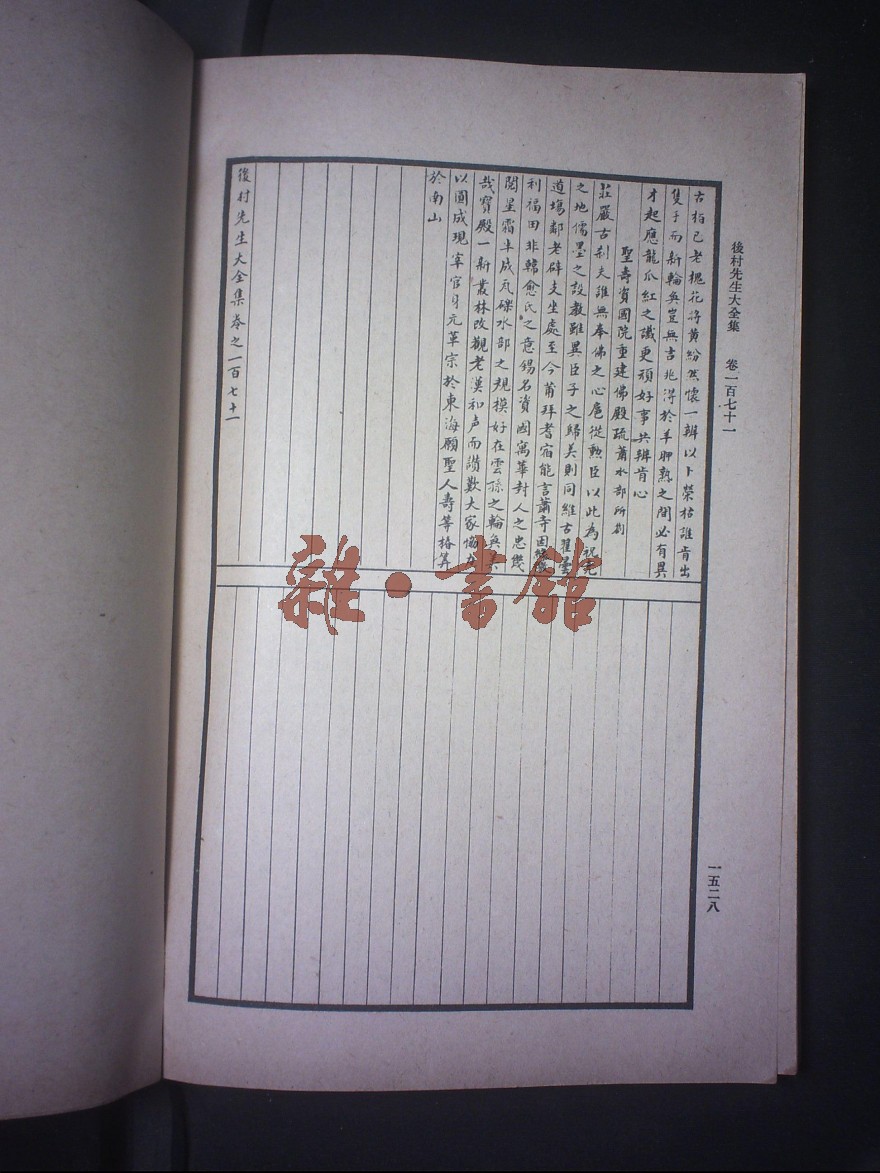 後村先生大全集　卷一百七十一
古柏已老槐花将黄紛然懷一辨以卜榮枯誰肯出
隻手而新輪奐豈無吉兆得於羊胛熟之間必有異
才起應龍爪紅之讖更頑好事共辨肯心
聖壽資國院重建佛殿疏蕭水部所剏
莊嚴古刹夫誰無奉佛之心扈從勲臣以此為祝堯
之地儒墨之設教雖異臣子之歸美則同維古瞿曇
道塲鄰老辟支坐處至今莆拜耆宿能言蕭寺因
利福田非韓愈氏之意錫名資國寓華封人之忠幾
閲星霜半成瓦礫水部之規模好在雲孫之輪奐
哉寳殿一新叢林改觀老漢和声而讃歎大家
以圓成現宰官身元草宗於東海願聖人壽等椿筭
於南山
後村先生大全集卷之一百七十一
一五二八
雜·書館